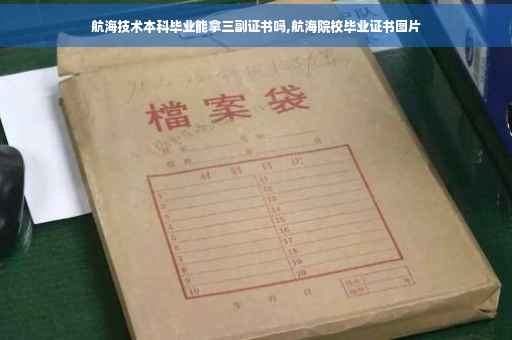 航海技术本科毕业能拿三副证书吗,航海院校毕业证书图片
檔案袋
材料目次
1 11
2 12
3 13
4 14
5 15
6 16
7 17
8 18
9 19
10 20
年 月 日